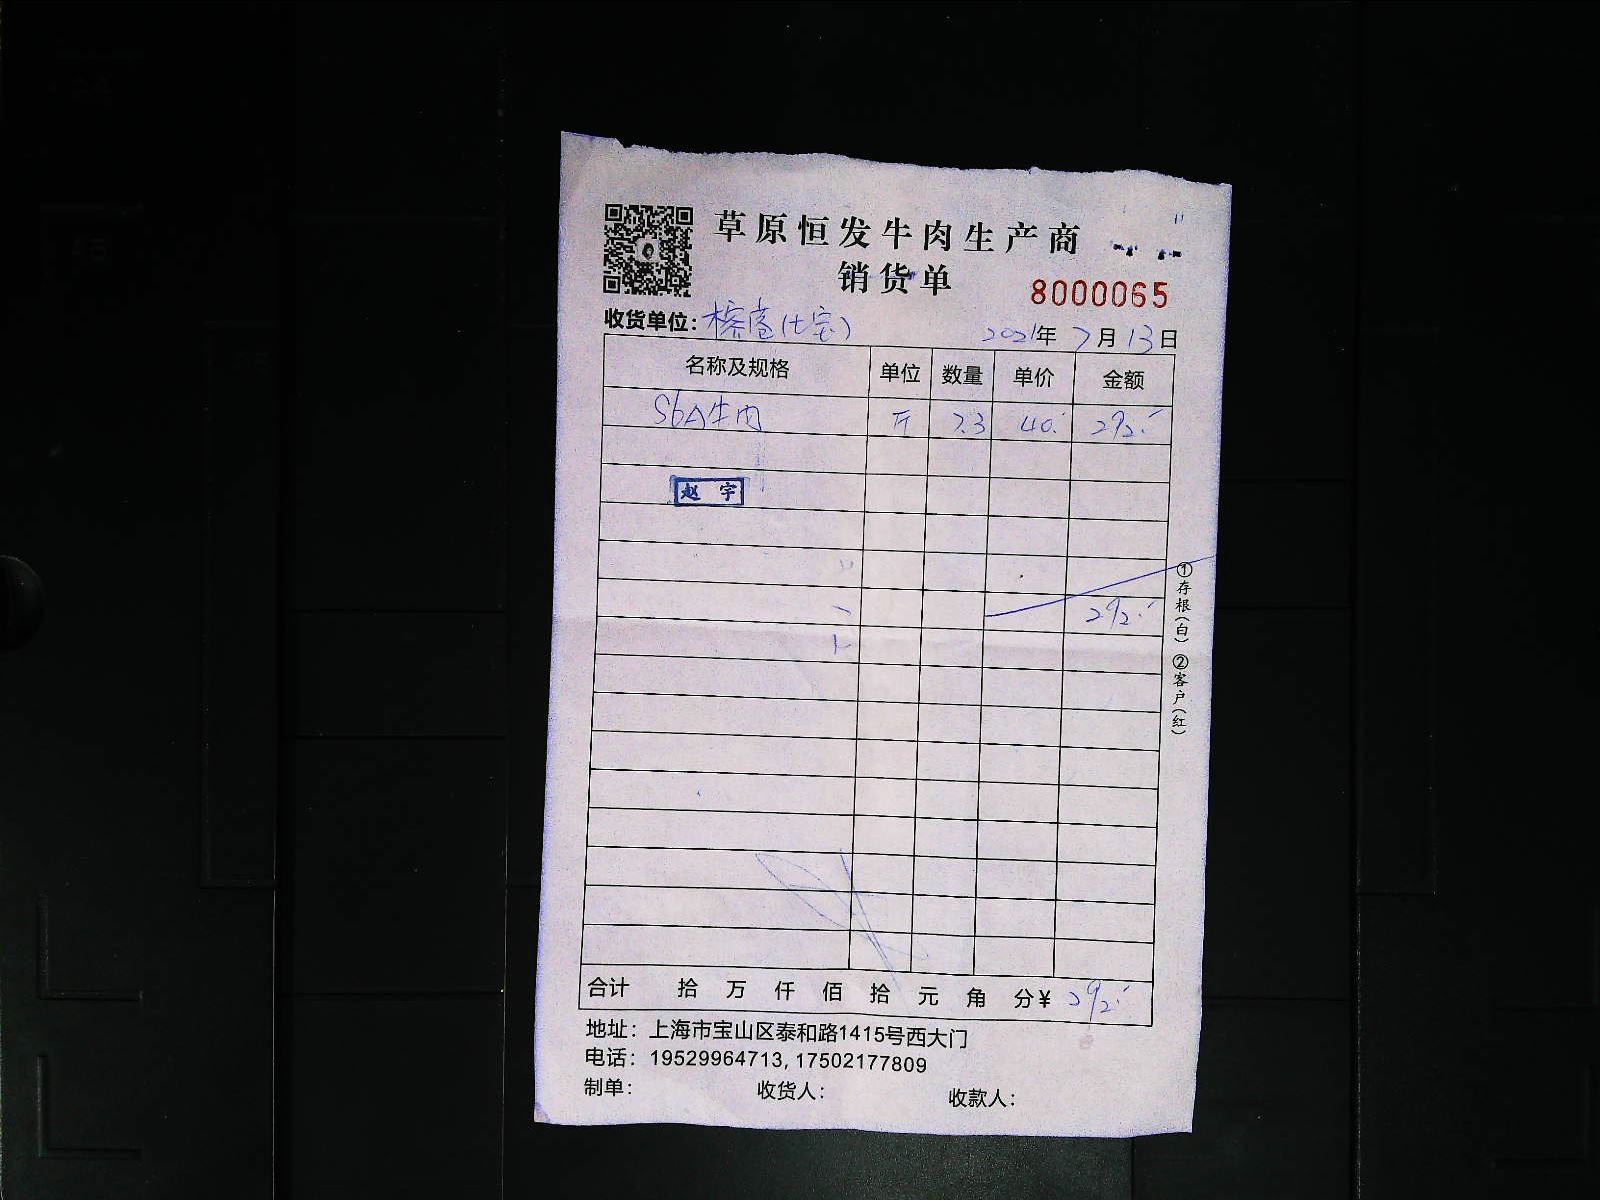 草原恒发牛肉生产商
销货单
8000065
收货单位:
2021年 7月13日
名称及规格 单位 数量 单价 金额
S6A牛肉 斤 7.3 40. 292.
赵宇
292.
①存根(白) ②客户(红)
合计 拾 万 仟 佰 拾 元 角 分¥ 292.
地址: 上海市宝山区泰和路1415号西大门
电话: 19529964713, 17502177809
制单: 收货人: 收款人: